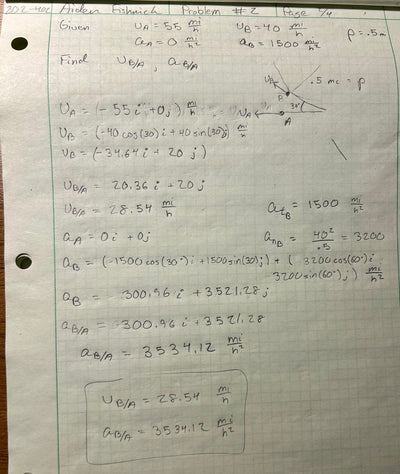 202-402 Aiden Eshrich Problem # 2 Page 1/4
Given vA = 55 mi/h vB = 40 mi/h ρ = .5 m
aA = 0 mi/h² aB = 1500 mi/h²
Find vB/A , aB/A
vB .5 mi = ρ
B
vA A 30°
vA = (-55i + 0j) mi/h
vB = (-40 cos(30) i + 40 sin(30) j) mi/h
vB = (-34.64 i + 20 j)
vB/A = 20.36 i + 20 j
vB/A = 28.54 mi/h
atB = 1500 mi/h²
aA = 0i + 0j
anB = 40²/.5 = 3200
aB = (-1500 cos(30°) i + 1500 sin(30) j) + ( 3200 cos(60°) i
- 3200 sin(60°) j ) mi/h²
aB = 300.96 i + 3521.28 j
aB/A = 300.96 i + 3521.28
aB/A = 3534.12 mi/h²
vB/A = 28.54 mi/h
aB/A = 3534.12 mi/h²